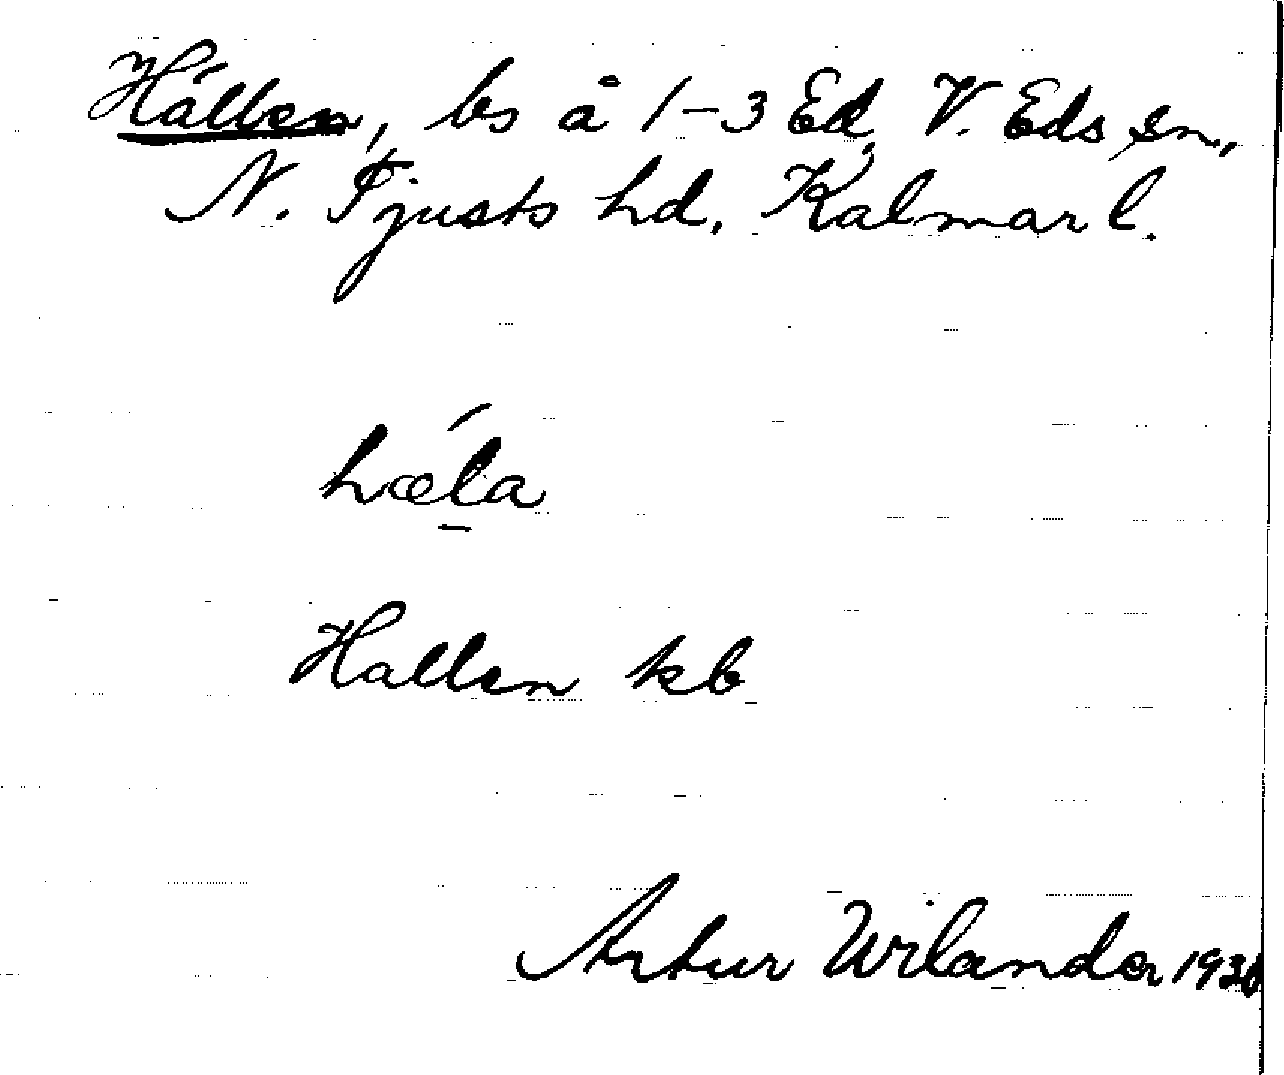 Hällen, bs å 1-3 Ed, V. Eds sn,
N. Tjusts hd, Kalmar l.
hæĺ̠a
Hallen kb
Artur Wilander 1930